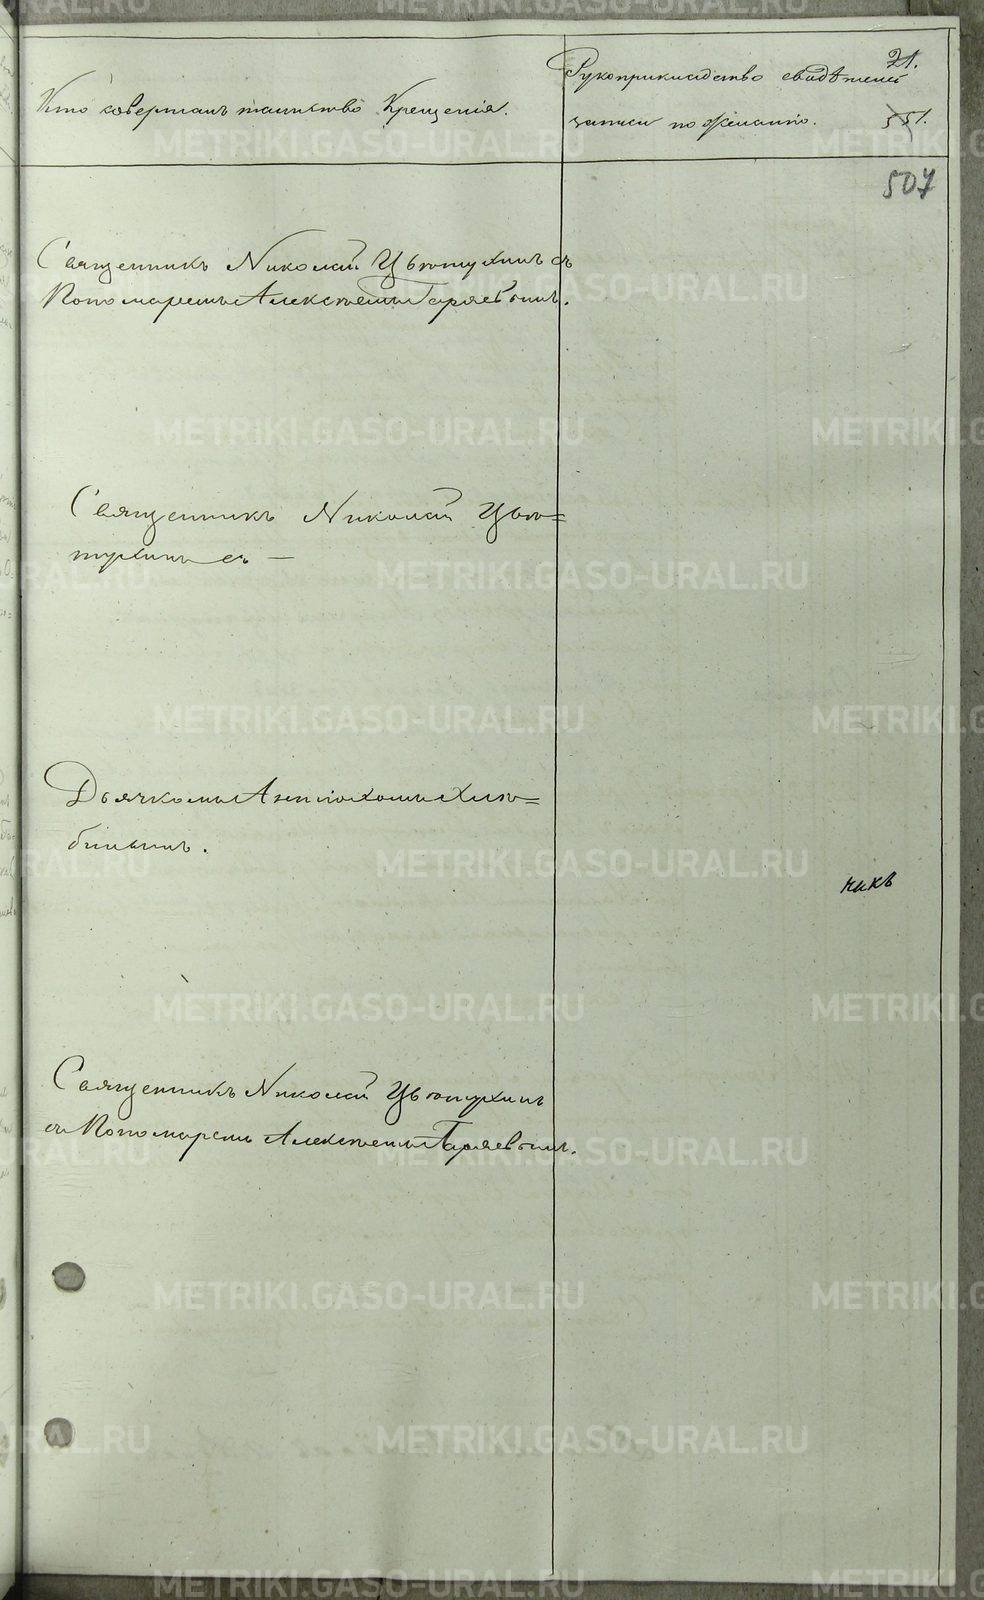 21.
Кто совершалъ таинство Крещенія.
Рукоприкладство свидѣтелей
записи по желанію.
551.
507
Священникъ Николай Цвѣтухинъ съ
Пономаремъ Алексѣемъ Гаряевымъ.
Священникъ Николай Цвѣ=
тухинъ съ —
Дьячкомъ Антіохомъ Хлѣ=
бинымъ.
чикъ
Священникъ Николай Цвѣтухинъ
съ Пономаремъ Алексѣемъ Гаряевымъ.
METRIKI.GASO-URAL.RU